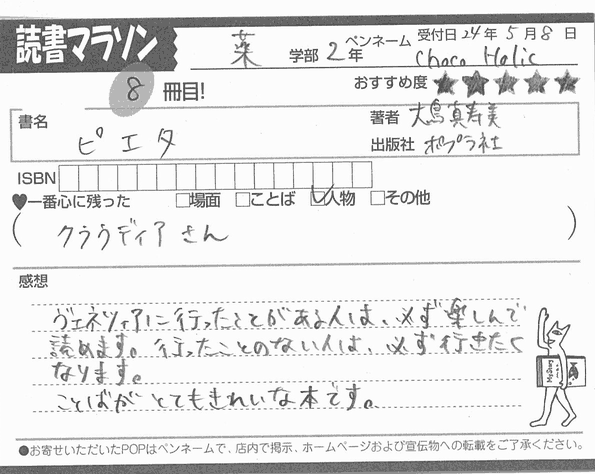 読書マラソン 薬 学部 2年 ペンネーム Choco Holic 受付日 24年5月8日
8 冊目! おすすめ度 ★★★★★
書名 ピエタ
著者 大島真寿美
出版社 ポプラ社
ISBN
♥一番心に残った □場面 □ことば ☑人物 □その他
( クラウディアさん )
感想
ヴェネツィアに行ったことがある人は、必ず楽しんで
読めます。行ったことのない人は、必ず行きたく
なります。
ことばが とてもきれいな本です。
●お寄せいただいたPOPはペンネームで、店内で掲示、ホームページおよび宣伝物への転載をご了承ください。